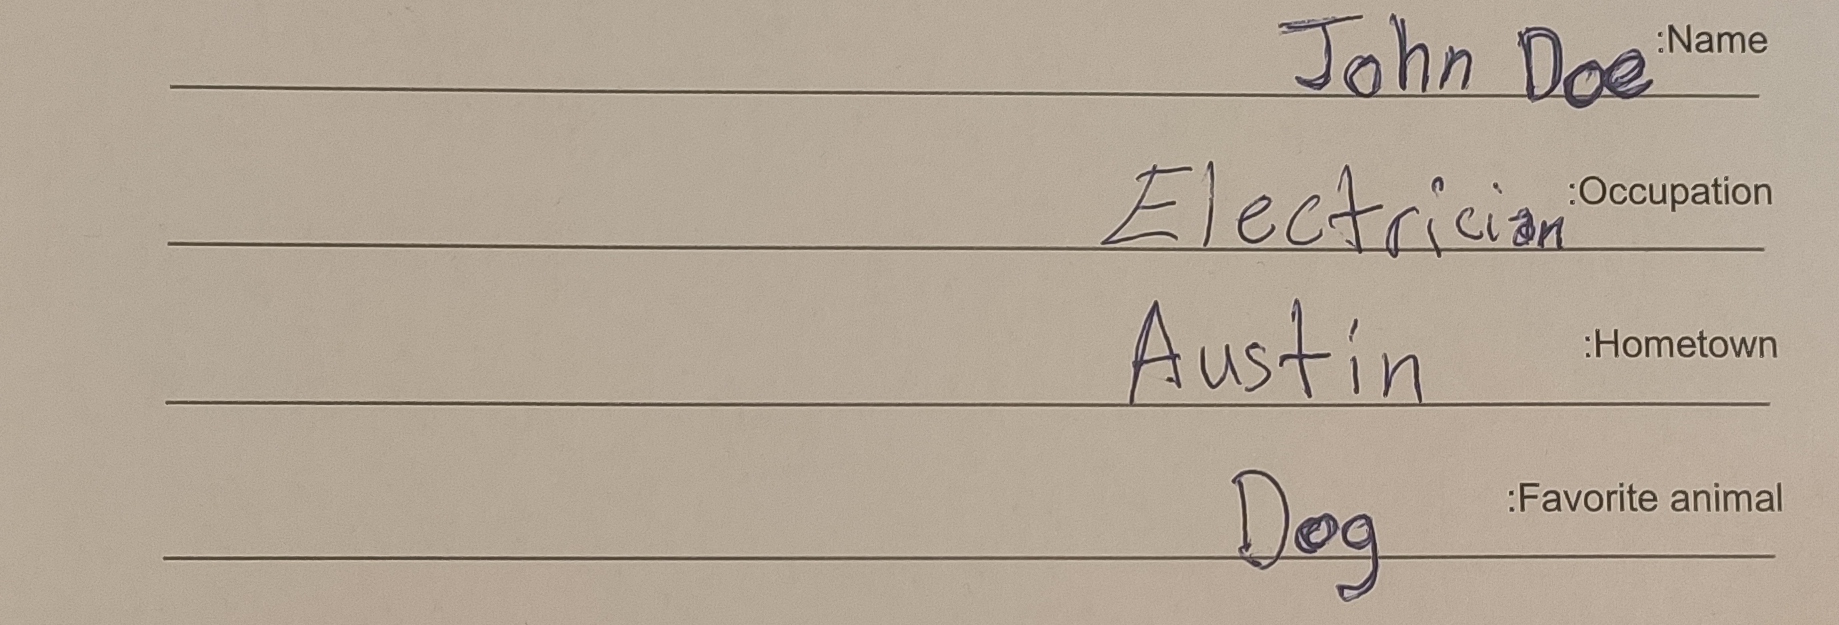 :Name John Doe
:Occupation Electrician
:Hometown Austin
:Favorite animal Dog